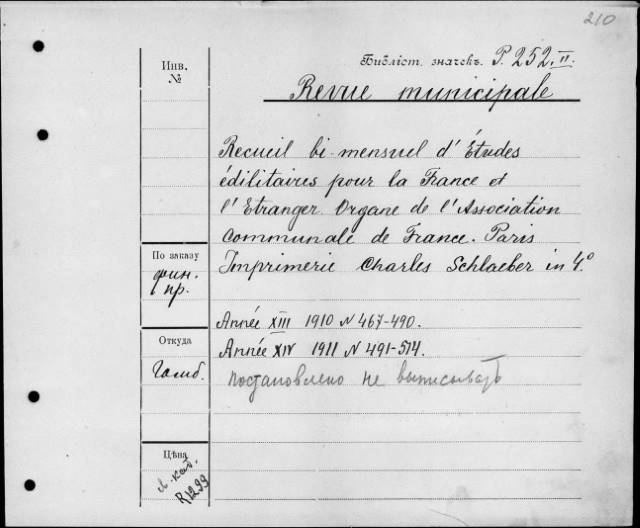 210
Библіот. значекъ P. 252. II.
Revue municipale
Recueil bi-mensuel d'Études
édilitaires pour la France et
l'Etranger. Organe de l'Association
Communale de France. Paris
Imprimerie Charles Schlaeber in 4°.
Année XIII 1910 N 467-490.
Année XIV 1911 N 491-514.
постановлено не выписывать
Инв.
№
По заказу
фин.
пр.
Откуда
Цѣна
R1299